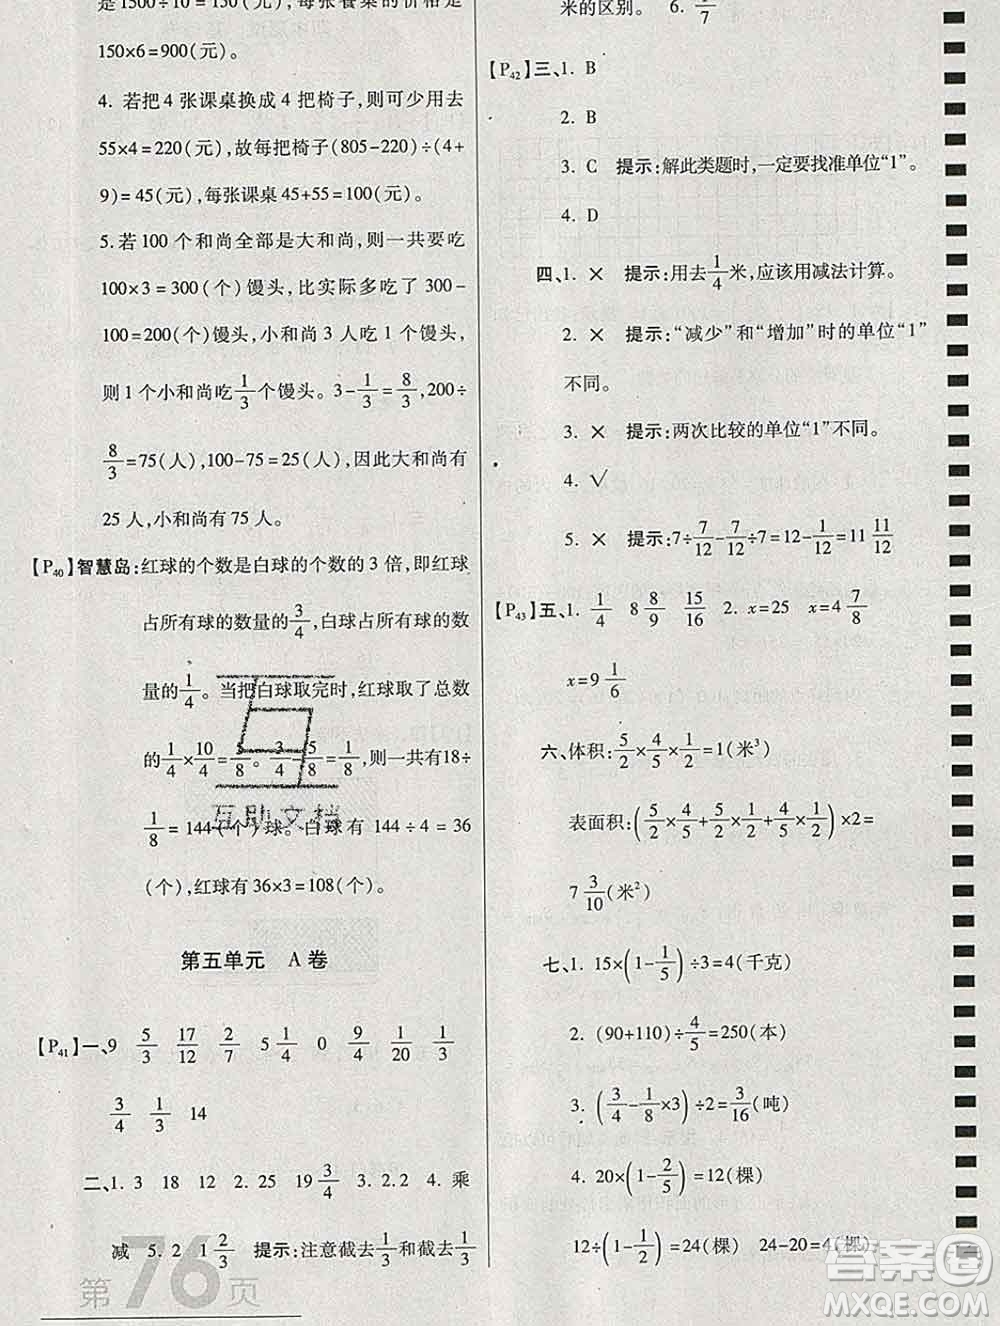 是1500÷10=150(元),每张餐桌的价格是
150×6=900(元)。
4. 若把 4 张课桌换成 4 把椅子,则可少用去
55×4=220(元),故每把椅子(805-220)÷(4+
9)=45(元),每张课桌45+55=100(元)。
5. 若 100 个和尚全部是大和尚,则一共要吃
100×3=300(个)馒头,比实际多吃了 300-
100=200(个)馒头,小和尚 3 人吃 1 个馒头,
则 1 个小和尚吃1/3个馒头。3-1/3=8/3,200÷
8/3=75(人),100-75=25(人),因此大和尚有
25 人,小和尚有 75 人。
【P40】智慧岛:红球的个数是白球的个数的 3 倍,即红球
占所有球的数量的3/4,白球占所有球的数
量的1/4。当把白球取完时,红球取了总数
的1/4×10/4=5/8。3/4-5/8=1/8,则一共有18÷
1/8=144(个)球。白球有 144÷4=36
(个),红球有 36×3=108(个)。
第五单元 A 卷
【P41】一、9 5/3 17/12 2/7 5 1/4 0 9/4 1/20 1/3
3/4 1/3 14
二、1. 3 18 12 2. 25 19 3/4 3. 2.2 4. 乘
减 5. 2 1 2/3 提示:注意截去1/3和截去1/3
第76页
米的区别。 6. 1/7
【P42】三、1. B
2. B
3. C 提示:解此类题时,一定要找准单位“1”。
4. D
四、1. × 提示:用去1/4米,应该用减法计算。
2. × 提示:“减少”和“增加”时的单位“1”
不同。
3. × 提示:两次比较的单位“1”不同。
4. √
5. × 提示:7÷7/12-7/12÷7=12-1/12=11 11/12
【P43】五、1. 1/4 8 8/9 15/16 2. x=25 x=4 7/8
x=9 1/6
六、体积:5/2×4/5×1/2=1(米³)
表面积:(5/2×4/5+5/2×1/2+4/5×1/2)×2=
7 3/10(米²)
七、1. 15×(1-1/5)÷3=4(千克)
2. (90+110)÷4/5=250(本)
3. (3/4-1/8×3)÷2=3/16(吨)
4. 20×(1-2/5)=12(棵)
12÷(1-1/2)=24(棵) 24-20=4(棵)
互助文档
答案圈
MXQE.COM